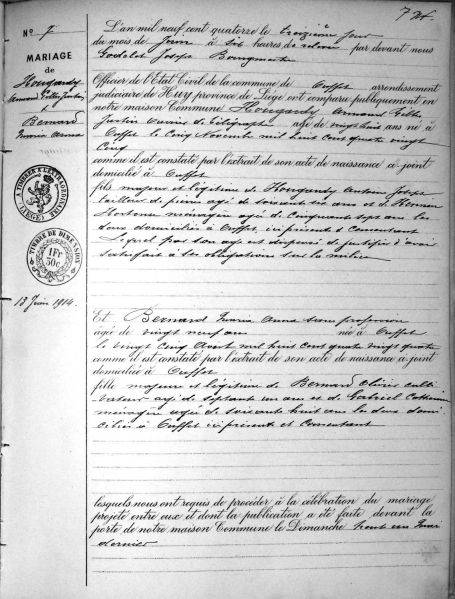 72f.
N° 7
MARIAGE
de
Hougardy
Armand Gilles Justin
&
Bernard
Maria Anna
A TIMBRER A L'EXTRAORDINAIRE
LIEGE
TIMBRE DE DIMENSION
1 Fr
50c
13 Juin 1914.
L'an mil neuf cent quatorze le treizième jour
du mois de Juin à six heures de relevée par devant nous
Godelet Joseph Bourgmestre
Officier de l'Etat Civil de la commune de Ouffet arrondissement
judiciaire de HUY province de Liège ont comparu publiquement en
notre maison Commune Hougardy Armand Gilles
Justin Ouvrier de télégraph âgé de vingt huit ans né à
Ouffet le Cinq Novembre mil huit cent quatre vingt
Cinq
comme il est constaté par l'extrait de son acte de naissance ci-joint
domicilié à Ouffet
fils majeur et légitime de Hougardy Antoine Joseph
tailleur de pierres agé de soixante six ans et de
Hortense ménagère agée de Cinquante sept ans les
deux domiciliés à Ouffet, ici présents et Consentant
Lequel par son agé est dispensé de justifier d'avoir
satisfait à ses obligations sur la milice
Et Bernard Maria Anna sans profession
agée de vingt neuf ans née à Ouffet
le vingt cinq Aout mil huit cent quatre vingt quatre
comme il est constaté par l'extrait de son acte de naissance ci-joint
domiciliée à Ouffet
fille majeure et légitime de Bernard Olivier culti-
vateur agé de septante un ans et de Gabriel Catherine
ménagère agée de soixante huit ans les deux domi-
ciliés à Ouffet ici présent et Consentant
lesquels nous ont requis de procéder à la célébration du mariage
projeté entre eux et dont la publication a été faite devant la
porte de notre maison Commune le Dimanche trente un Mai
dernier